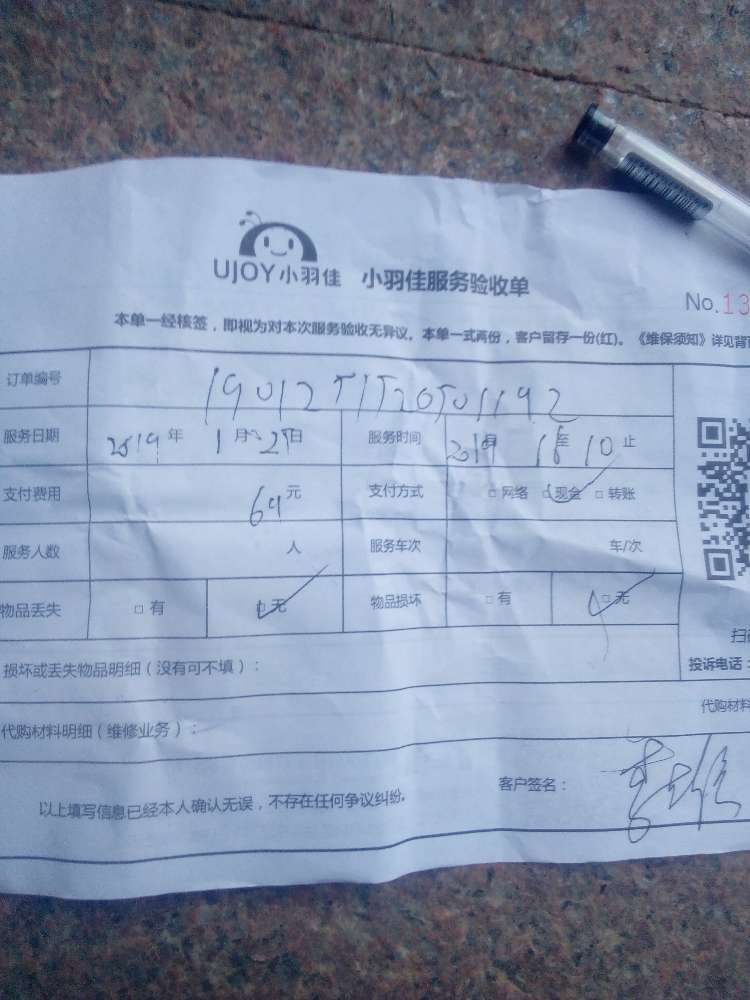 UJOY小羽佳 小羽佳服务验收单
No.13
本单一经核签，即视为对本次服务验收无异议。本单一式两份，客户留存一份(红)。《维保须知》详见背
订单编号 1901251520501192
服务日期 2019年 1月25日 服务时间 至 10 止
支付费用 64元 支付方式 □网络 □现金 □转账
服务人数 人 服务车次 车/次
物品丢失 □有 □无 物品损坏 □有 □无
损坏或丢失物品明细（没有可不填）：
投诉电话：
代购材料
代购材料明细（维修业务）：
客户签名：
以上填写信息已经本人确认无误，不存在任何争议纠纷.